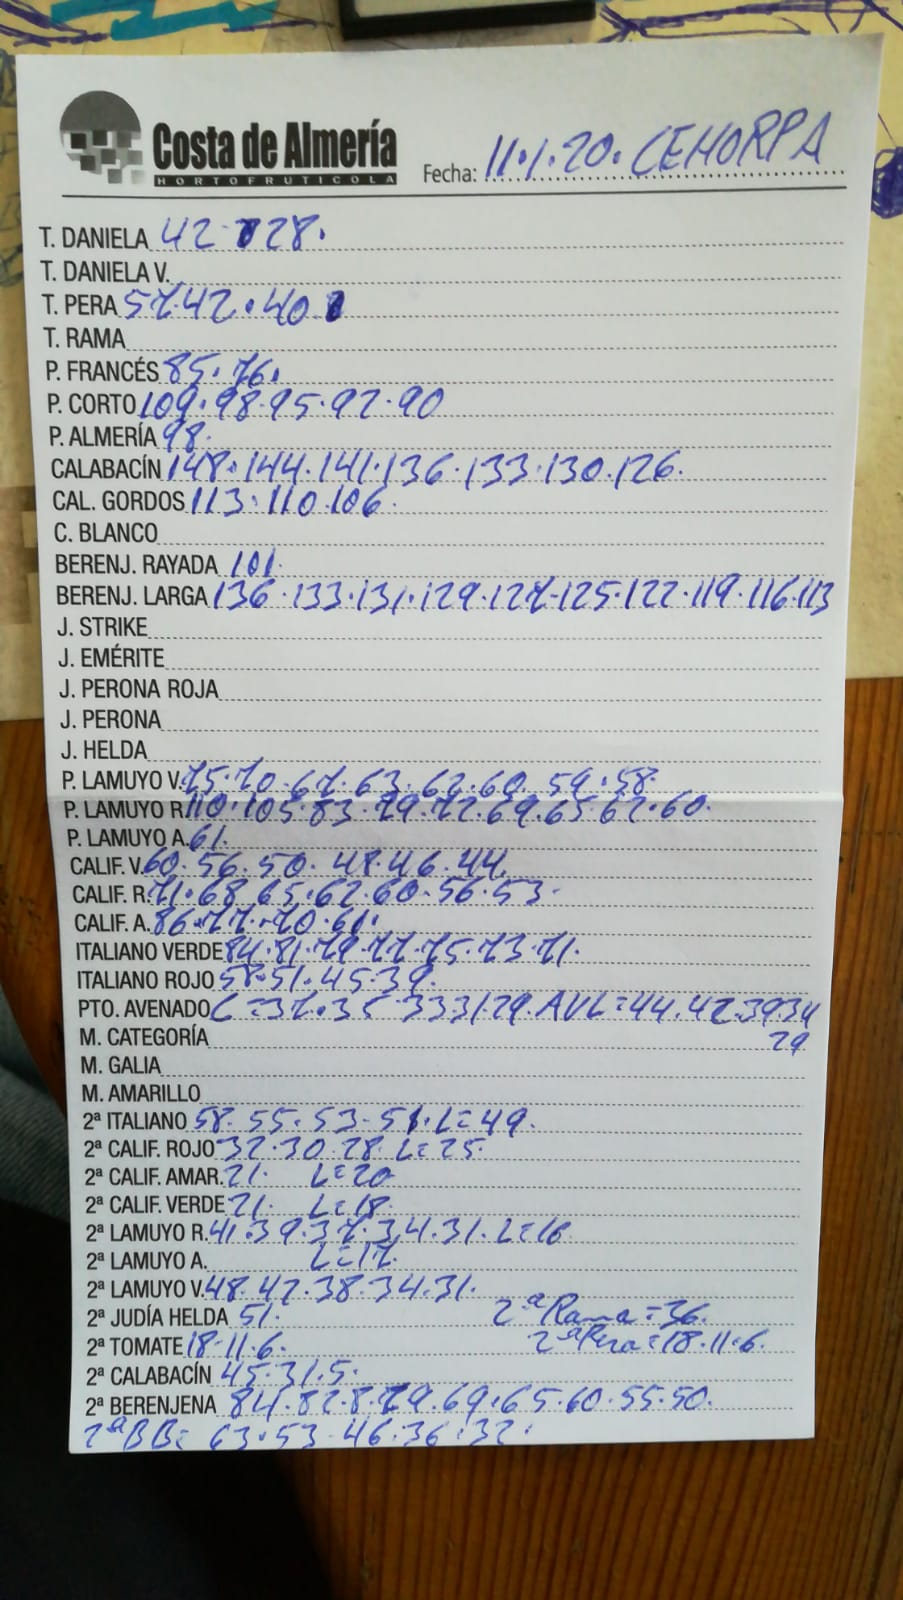 Costa de Almería
HORTOFRUTICOLA
Fecha: 11.1.20. CEHORPA
T. DANIELA 42. 28.
T. DANIELA V.
T. PERA 57.42.40
T. RAMA
P. FRANCÉS 85.76.
P. CORTO 109.98.95.92.90
P. ALMERÍA 98.
CALABACÍN 148.144.141.136.133.130.126.
CAL. GORDOS 113.110.106.
C. BLANCO
BERENJ. RAYADA 101.
BERENJ. LARGA 136.133.131.129.127.125.122.119.116.113
J. STRIKE
J. EMÉRITE
J. PERONA ROJA
J. PERONA
J. HELDA
P. LAMUYO V. 75.70.67.63.62.60.59.58.
P. LAMUYO R. 110.105.83.79.72.69.65.62.60.
P. LAMUYO A. 61.
CALIF. V. 60.56.50.48.46.44.
CALIF. R. 71.68.65.62.60.56.53.
CALIF. A. 86.77.70.61.
ITALIANO VERDE 84.81.79.77.75.73.71.
ITALIANO ROJO 58.51.45.39.
PTO. AVENADO C=37.35.33 31.29. AVL=44.42.39.34
M. CATEGORÍA 29
M. GALIA
M. AMARILLO
2ª ITALIANO 58.55.53.51.L=49.
2ª CALIF. ROJO 32.30.28.L=25.
2ª CALIF. AMAR. 21. L=20
2ª CALIF. VERDE 21. L=18.
2ª LAMUYO R. 41.39.37.34.31.L=16
2ª LAMUYO A. L=17.
2ª LAMUYO V. 48.42.38.34.31.
2ª JUDÍA HELDA 51. 2ª Rama=36.
2ª TOMATE 18.11.6. 2ª Pera=18.11.6.
2ª CALABACÍN 45.31.5.
2ª BERENJENA 84.82.8.79.69.65.60.55.50.
2ª BB= 63.53.46.36.32.